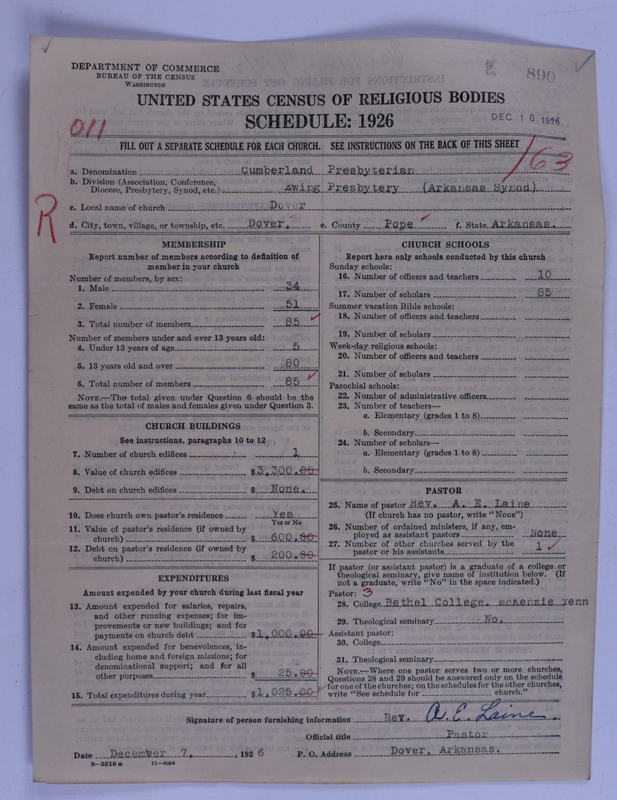 DEPARTMENT OF COMMERCE
BUREAU OF THE CENSUS
WASHINGTON
890
UNITED STATES CENSUS OF RELIGIOUS BODIES
SCHEDULE: 1926
DEC 10 1926
011
FILL OUT A SEPARATE SCHEDULE FOR EACH CHURCH. SEE INSTRUCTIONS ON THE BACK OF THIS SHEET
163
a. Denomination Cumberland Presbyterian
b. Division (Association, Conference, Diocese, Presbytery, Synod, etc.) Ewing Presbytery (Arkansas Synod)
c. Local name of church Dover
R
d. City, town, village, or township, etc. Dover, e. County Pope f. State Arkansas.
MEMBERSHIP
Report number of members according to definition of
member in your church
Number of members, by sex:
1. Male 34
2. Female 51
3. Total number of members 85
Number of members under and over 13 years old:
4. Under 13 years of age 5
5. 13 years old and over 80
6. Total number of members 85
NOTE.—The total given under Question 6 should be
same as the total of males and females given under Question 3.
CHURCH BUILDINGS
See instructions, paragraphs 10 to 12
7. Number of church edifices 1
8. Value of church edifices $3,300.00
9. Debt on church edifices $ None.
10. Does church own pastor's residence Yes
Yes or No
11. Value of pastor's residence (if owned by
church) $ 600.00
12. Debt on pastor's residence (if owned by
church) $ 200.00
EXPENDITURES
Amount expended by your church during last fiscal year
13. Amount expended for salaries, repairs,
and other running expenses; for im-
provements or new buildings; and for
payments on church debt $1,000.00
14. Amount expended for benevolences, in-
cluding home and foreign missions; for
denominational support; and for all
other purposes $ 25.00
15. Total expenditures during year $1,025.00
CHURCH SCHOOLS
Report here only schools conducted by this church
Sunday schools:
16. Number of officers and teachers 10
17. Number of scholars 85
Summer vacation Bible schools:
18. Number of officers and teachers
19. Number of scholars
Week-day religious schools:
20. Number of officers and teachers
21. Number of scholars
Parochial schools:
22. Number of administrative officers
23. Number of teachers—
a. Elementary (grades 1 to 8)
b. Secondary
24. Number of scholars—
a. Elementary (grades 1 to 8)
b. Secondary
PASTOR
25. Name of pastor Rev. A. E. Laine
(If church has no pastor, write "None")
26. Number of ordained ministers, if any, em-
ployed as assistant pastors None
27. Number of other churches served by the
pastor or his assistants 1
If pastor (or assistant pastor) is a graduate of a college or
theological seminary, give name of institution below. (If
not a graduate, write "No" in the space indicated.)
Pastor: 3
28. College Bethel College. McKenzie Tenn
29. Theological seminary No.
Assistant pastor:
30. College
31. Theological seminary
NOTE.—Where one pastor serves two or more churches,
Questions 28 and 29 should be answered only on the schedule
for one of the churches; on the schedules for the other churches,
write "See schedule for church."
Signature of person furnishing information Rev. A. E. Laine.
Official title Pastor
Date December 7, 1926 P. O. Address Dover, Arkansas.
8—5518 a 11—9034